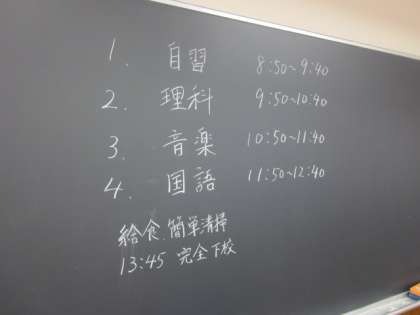 1. 自習 8:50~9:40
2. 理科 9:50~10:40
3. 音楽 10:50~11:40
4. 国語 11:50~12:40
給食.簡単清掃
13:45 完全下校